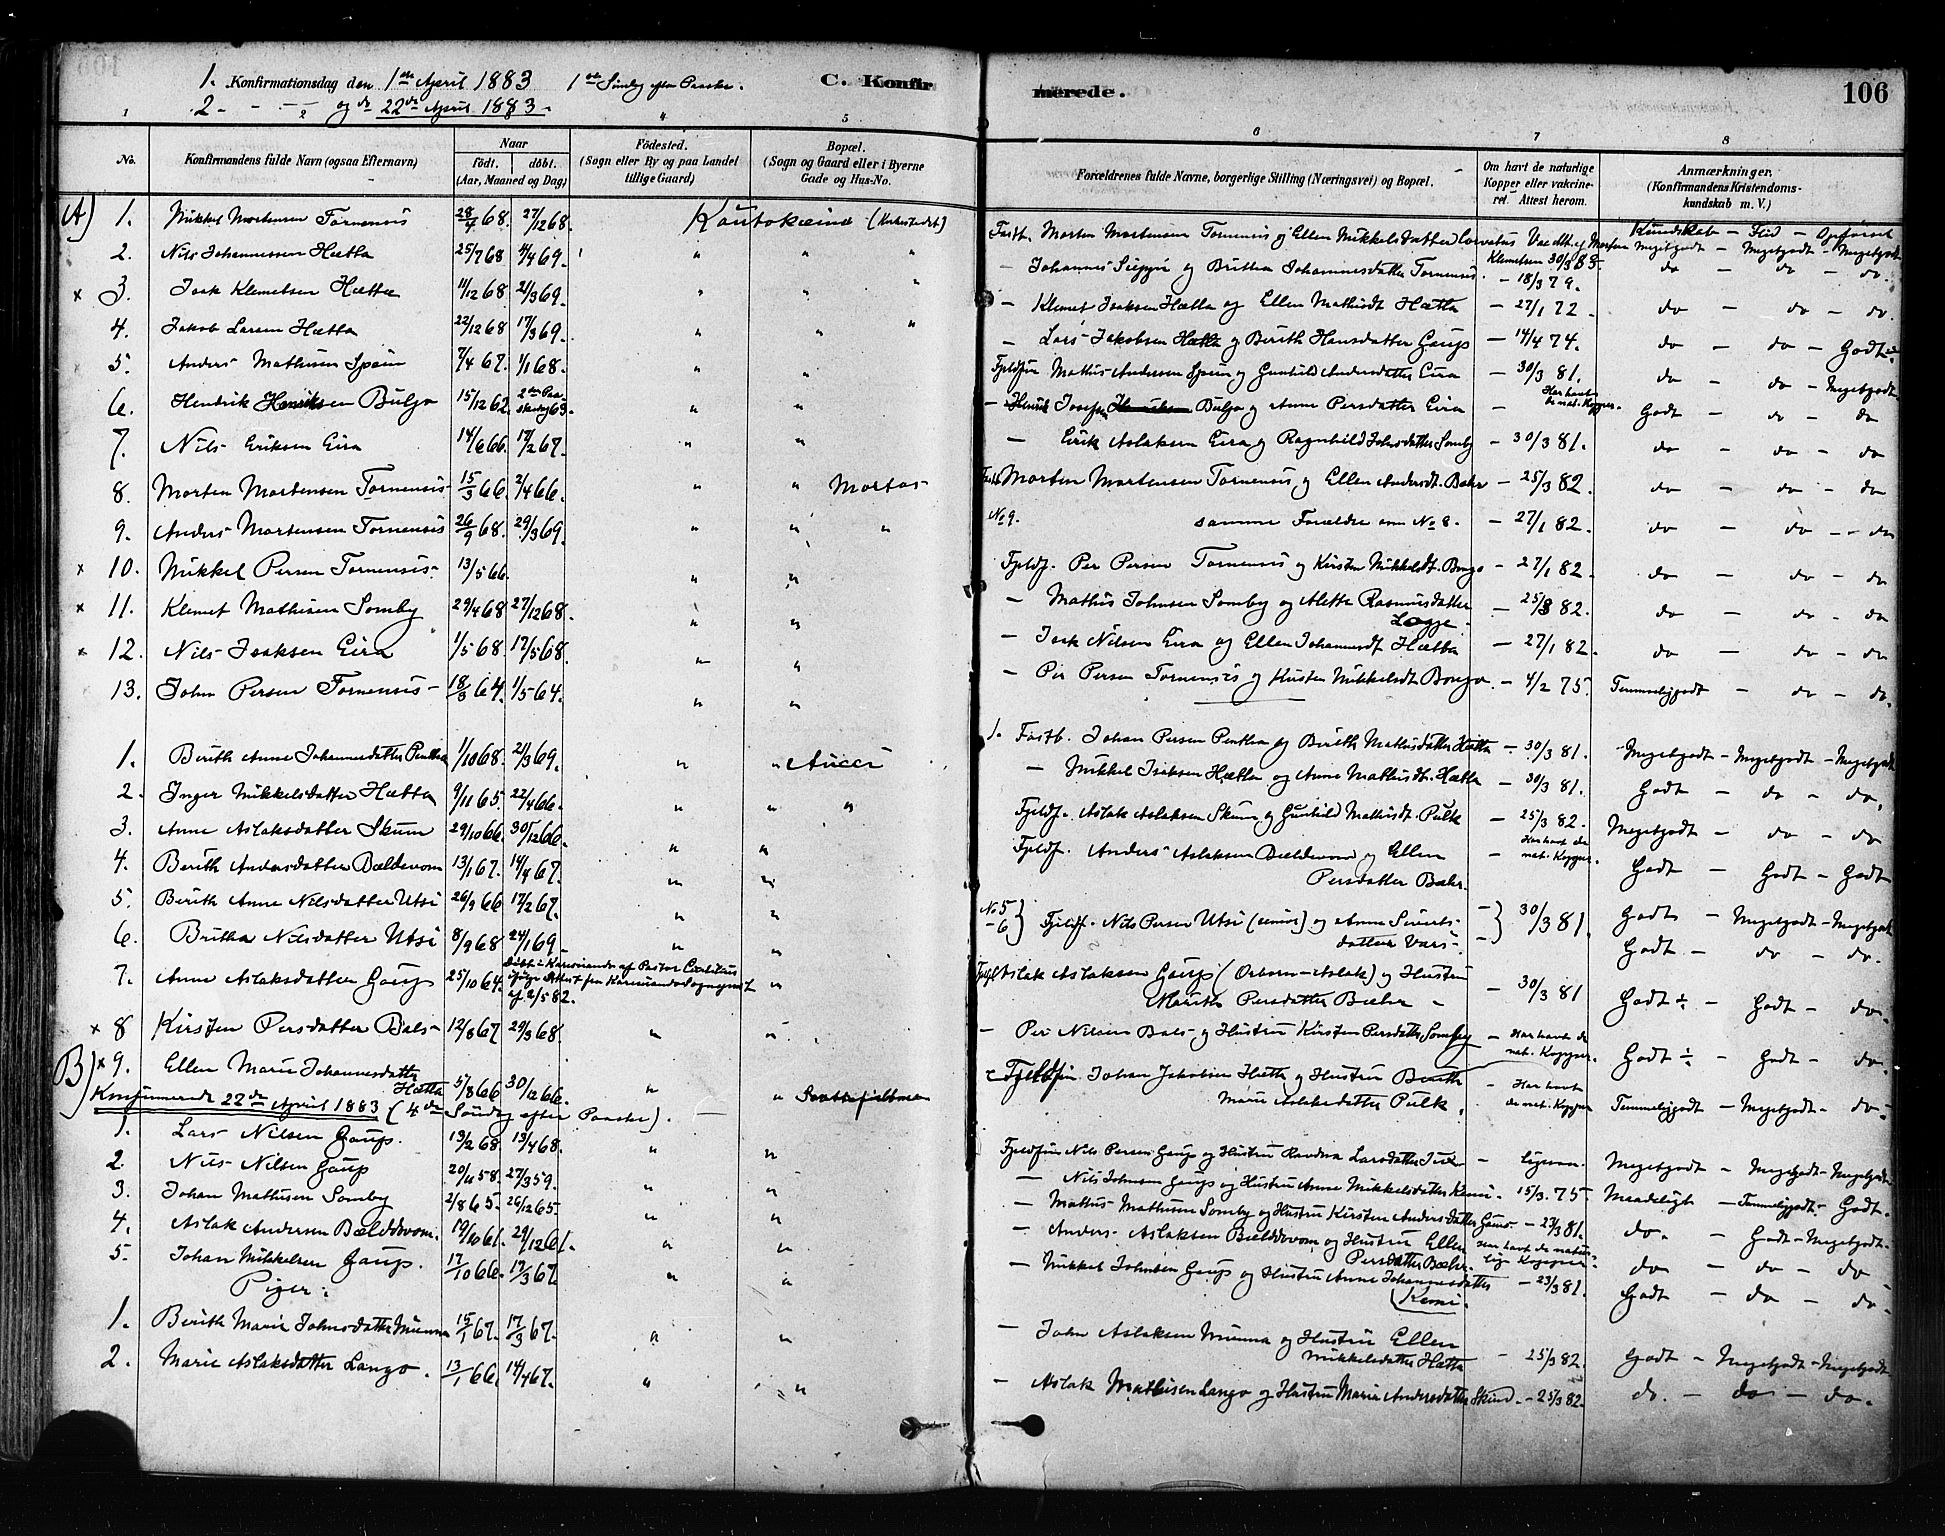 1. Konfirmationsdag den 1ste April 1883 1ste Søndag efter Paaske.
2 - - - og de 22de April 1883.
C. Konfirmerede.
106
1 2 4 5 6 7 8
No.
Konfirmandens fulde Navn (ogsaa Efternavn)
Naar
födt. döbt.
(Aar, Maaned og Dag)
Födested.
(Sogn eller By og paa Landet tillige Gaard)
Bopæl.
(Sogn og Gaard eller i Byerne Gade og Hus-No.
Forældrenes fulde Navne, borgerlige Stilling (Næringsvei) og Bopæl.
Om havt de naturlige Kopper eller vakcineret. Attest herom.
Anmærkninger.
(Konfirmandens Kristendomskundskab m. V.)
Kundskab - Flid - Opførsel
A) 1. Mikkel Mortensen Tornensis 28/4 68. 27/12 68. Kautokeino (Kirkestedet) Fastb. Morten Mortensen Tornensis og Ellen Mikkelsdatter Megetgodt - Megetgodt - Megetgodt
2. Nils Johannessen Hætta 25/7 68 4/4 69. " " " - Johannes og Britha Johannesdatter Tornensis - 18/3 79. do - do - do.
x 3. Isak Klemetsen Hætta 11/12 68 21/3 69. " " - Klemet Isaksen Hætta og Ellen Mathisdt Hætta - 27/1 72 do - do - do.
4. Jakob Larsen Hætta 22/12 68 17/3 69. " " " - Lars Jakobsen Hætta og Berith Hansdatter Gaup - 14/4 74. do - do - Godt
5. Anders Mathisen Spein 7/4 67. 1/1 68. " " Fjeldfin Mathis Andersen Spein og Gunhild Andersdatter Eira - 30/3 81. do - do - Megetgodt
6. Hendrik Henriksen Buljo 15/12 62. 2den Paaskedag 63. " " - Josef Buljo og Anne Persdatter Eira - Har havt de nat. Kopper. Godt - do - do
7. Nils Eriksen Eira 14/6 66. 17/2 67. " " - Eirik Aslaksen Eira og Ragnhild Johnsdatter Somby - 30/3 81. do - do - do
8. Morten Mortensen Tornensis 15/3 66. 2/4 66. " " Mortas Fastb. Morten Mortensen Tornensis og Ellen Andersdt. Bæhr - 25/3 82. do - do - do
9. Anders Mortensen Tornensis 26/9 68. 29/3 69. " " " No 9. samme Forældre som No 8. - 27/1 82. do - do - do
x 10. Mikkel Persen Tornensis. 13/5 66. " " Fjeldf. Per Persen Tornensis og Kirsten Mikkelsdt. Bongo - 27/1 82. do - do - do
x 11. Klemet Mathisen Somby 29/4 68 27/12 68. " " - Mathis Johnsen Somby og Alette Rasmusdatter Logje. - 25/3 82. do - do - do
x 12. Nils Isaksen Eira 1/5 68 17/5 68. " " - Isak Nilsen Eira og Ellen Johannesdt Hætta - 27/1 82. do - do - do
13. John Persen Tornensis - 18/3 64. 1/5 64. " " - Per Persen Tornensis og Kirsten Mikkelsdt Bongo. - 4/2 75. Temmeliggodt - do - do.
1. Berith Anne Johannesdatter Pentha 1/10 68. 21/3 69. " " Aucci 1. Fastb. Johan Persen Pentha og Berith Mathisdatter Hætta - 30/3 81. Megetgodt - Megetgodt - Megetgodt
2. Inger Mikkelsdatter Hætta 9/11 65. 22/4 66. " " " - Mikkel Isaksen Hætta og Anne Mathisdt. Hætta - 30/3 81. Godt - do - do.
3. Anne Aslaksdatter Skum 29/10 66. 30/12 66. " " Fjeldf. Aslak Aslaksen Skum og Gunhild Mathisdt. Pulk - 25/3 82. Megetgodt - do - do
4. Berith Andersdatter Bældevom 13/1 67. 14/4 67. " " Fjeldf. Anders Aslaksen Bældevom og Ellen Persdatter Bæhr. - Har havt de nat. Kopper. Godt - Godt - Godt
5. Berith Anne Nilsdatter Utsi 26/9 66 17/2 67. " " No 5 - 6 } Fjeldf. Nils Persen Utsi (senior) og Anne Sivertsdatter Vars - } 30/3 81. Godt - Megetgodt - Megetgodt
6. Britha Nilsdatter Utsi 8/9 68 24/1 69. " " Godt - do - do.
7. Anne Aslaksdatter Gaup 25/10 64. Døbt i Karesuando af Pastor ifølge Attest fra Karesuando Sognepræst af 2/5 82. " Fjeldf. Aslak Aslaksen Gaup ( - Aslak) og Hustru Marith Persdatter Bæhr - - 30/3 81 Godt - Godt - do.
x 8 Kirsten Persdatter Bals - 12/8 67 29/3 68. " " - Per Nilsen Bals og Hustru Kirsten Persdatter Somby - Har havt de nat. Kopper. Godt - Godt - do.
x 9. Ellen Marie Johannesdatter Hætta 5/8 66 30/12 66. " " Fjeldfin Johan Jakobsen Hætta og Hustru Berith Marie Aslaksdatter Pulk. - Har havt de nat. Kopper Temmeliggodt - Megetgodt - do -
B) Konfirmerede 22de April 1883 (4de Søndag efter Paaske). -
1. Lars Nilsen Gaup. 13/2 68. 13/4 68. " " Fjeldfin Nils Persen Gaup og Hustru Ravdna Larsdatter - ligesaa. Megetgodt - Megetgodt - Megetgodt
2. Nils Nilsen Gaup 20/4 58. 27/3 59. " " - Nils Johnsen Gaup og Hustru Anne Mikkelsdatter Kemi. - 15/3. 75. Maadeligt - Temmeliggodt - Godt.
3. Johan Mathisen Somby 2/8 65. 26/12 65 " " - Mathis Mathisen Somby og Hustru Kirsten Andersdatter - 23/3 81. do. - Godt - Megetgodt.
4. Aslak Andersen Bælddevom. 19/10 61. 29/12 61. " " - Anders Aslaksen Bælddevom og Hustru Ellen Persdatter Bæhr. Har havt de naturlige Kopper. do - do - do
5. Johan Mikkelsen Gaup. 17/10 66. 17/3 67. " " - Mikkel Johnsen Gaup og Hustru Anne Johannesdatter Kemi. - 23/3 81. Godt - do - do
Piger:
1. Berith Marie Johnsdatter Munna 15/1 67. 17/3 67. " " - John Aslaksen Munna og Hustru Ellen Mikkelsdatter Hætta - 25/3 82. Godt - Megetgodt - Megetgodt
2. Marie Aslaksdatter Lango. 13/1 66. 14/4 67. " " - Aslak Mathisen Lango og Hustru Marie Andersdatter Skind. - 25/3 82. do. - do - do.